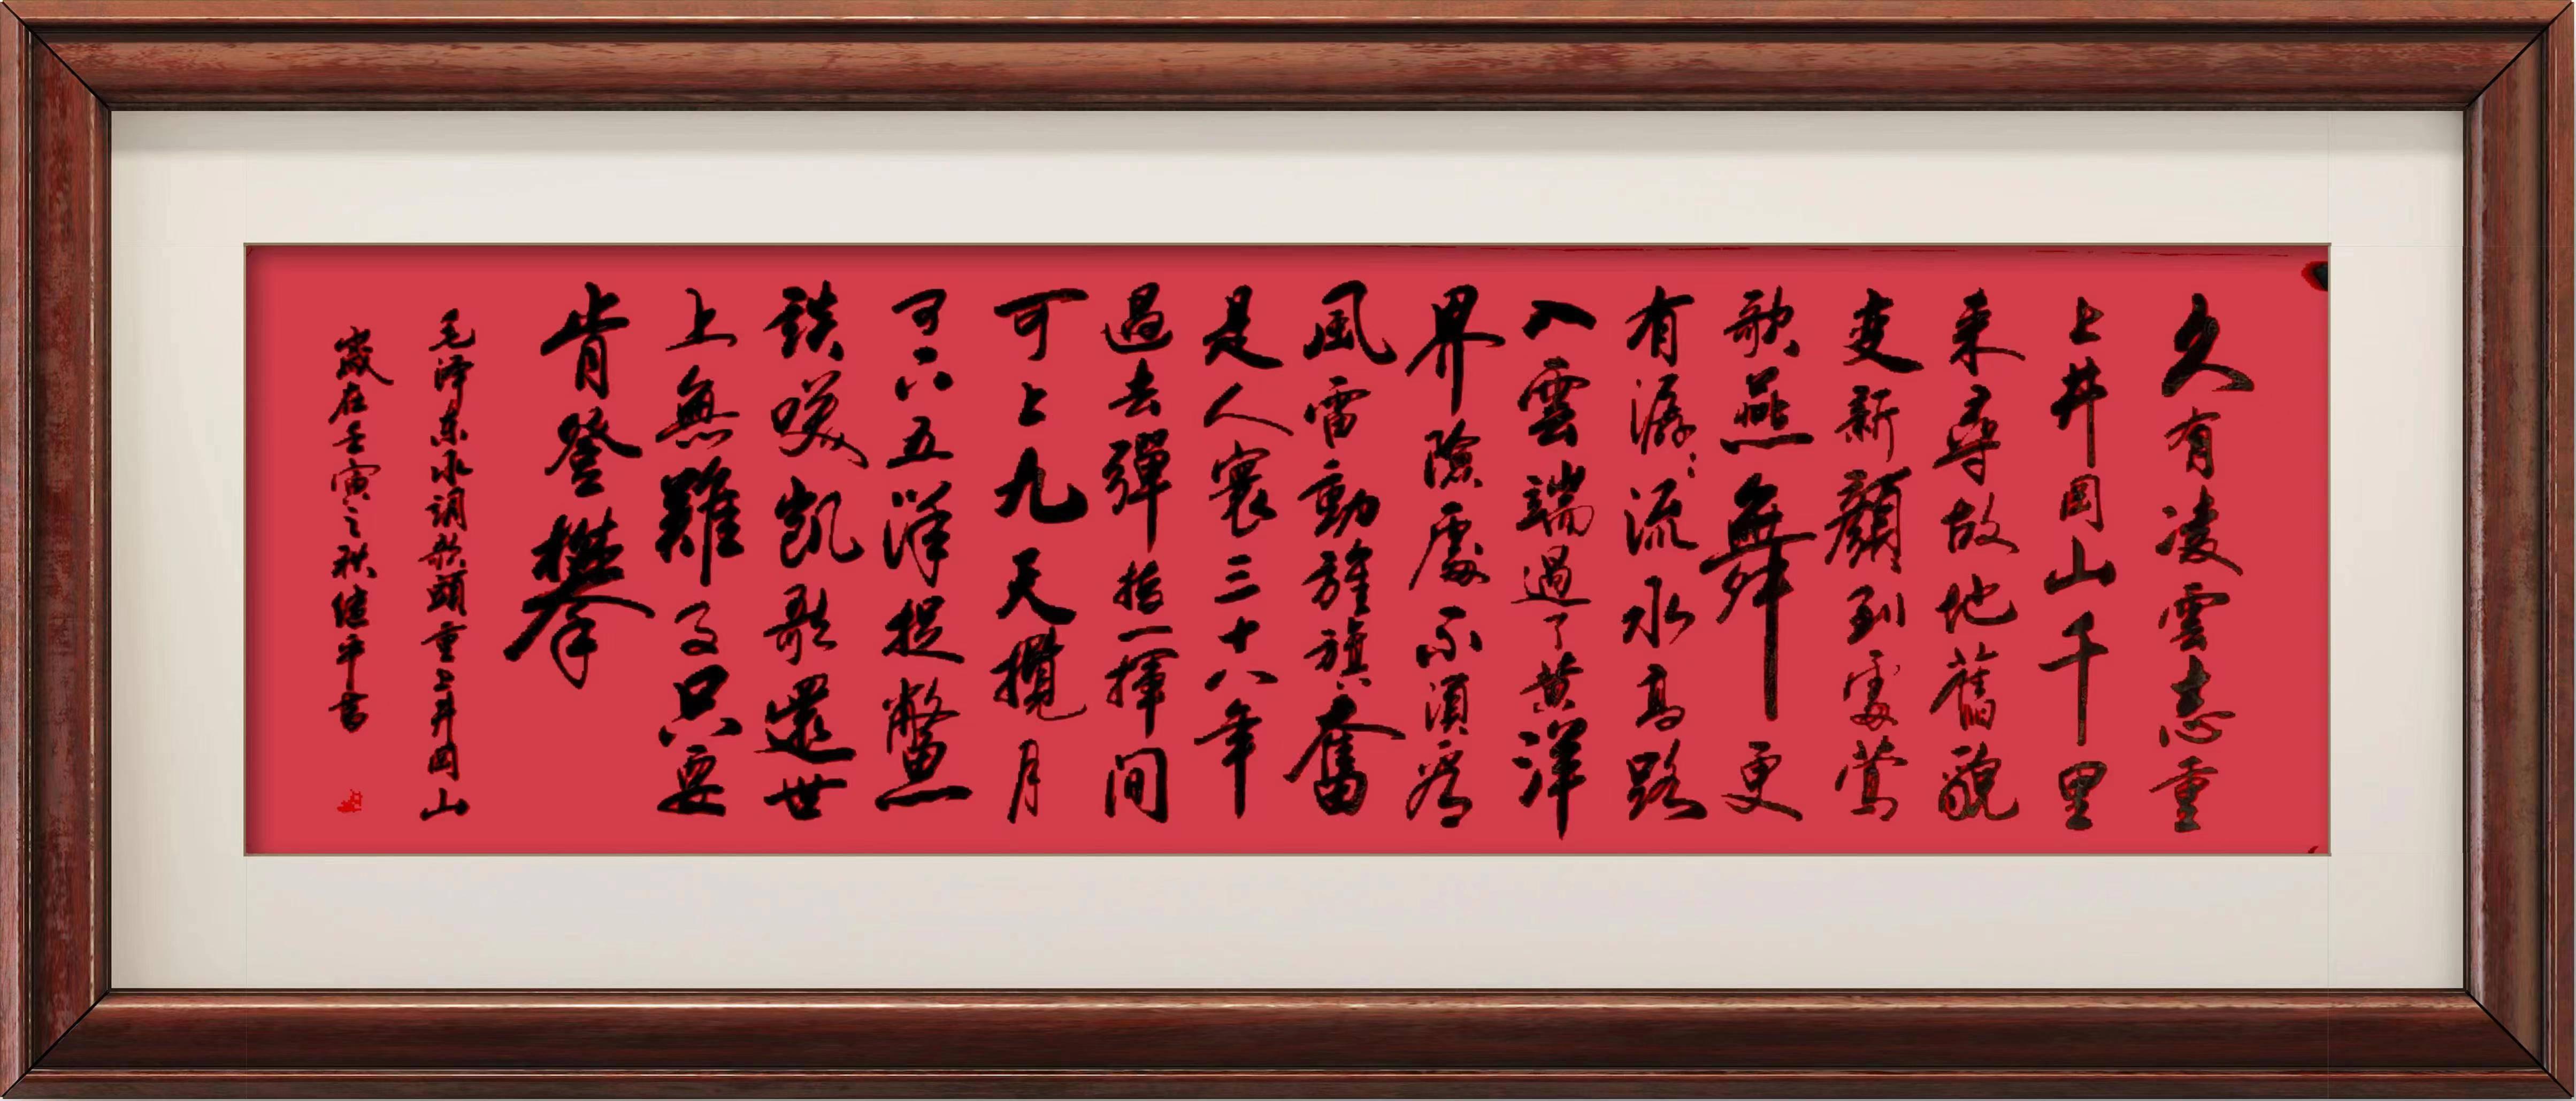 久有凌雲志重
上井岡山千里
来尋故地舊貌
變新顏到處鶯
歌燕舞更
有潺：流水高路
入雲端過了黄洋
界險處不須看
風雷動旌旗：奮
是人寰三十八年
過去彈指一揮間
可上九天攬月
可下五洋捉鱉
談笑凱歌還世
上無難事只要
肯登攀
毛泽东水调歌頭重上井岡山
歲在壬寅之秋继平書